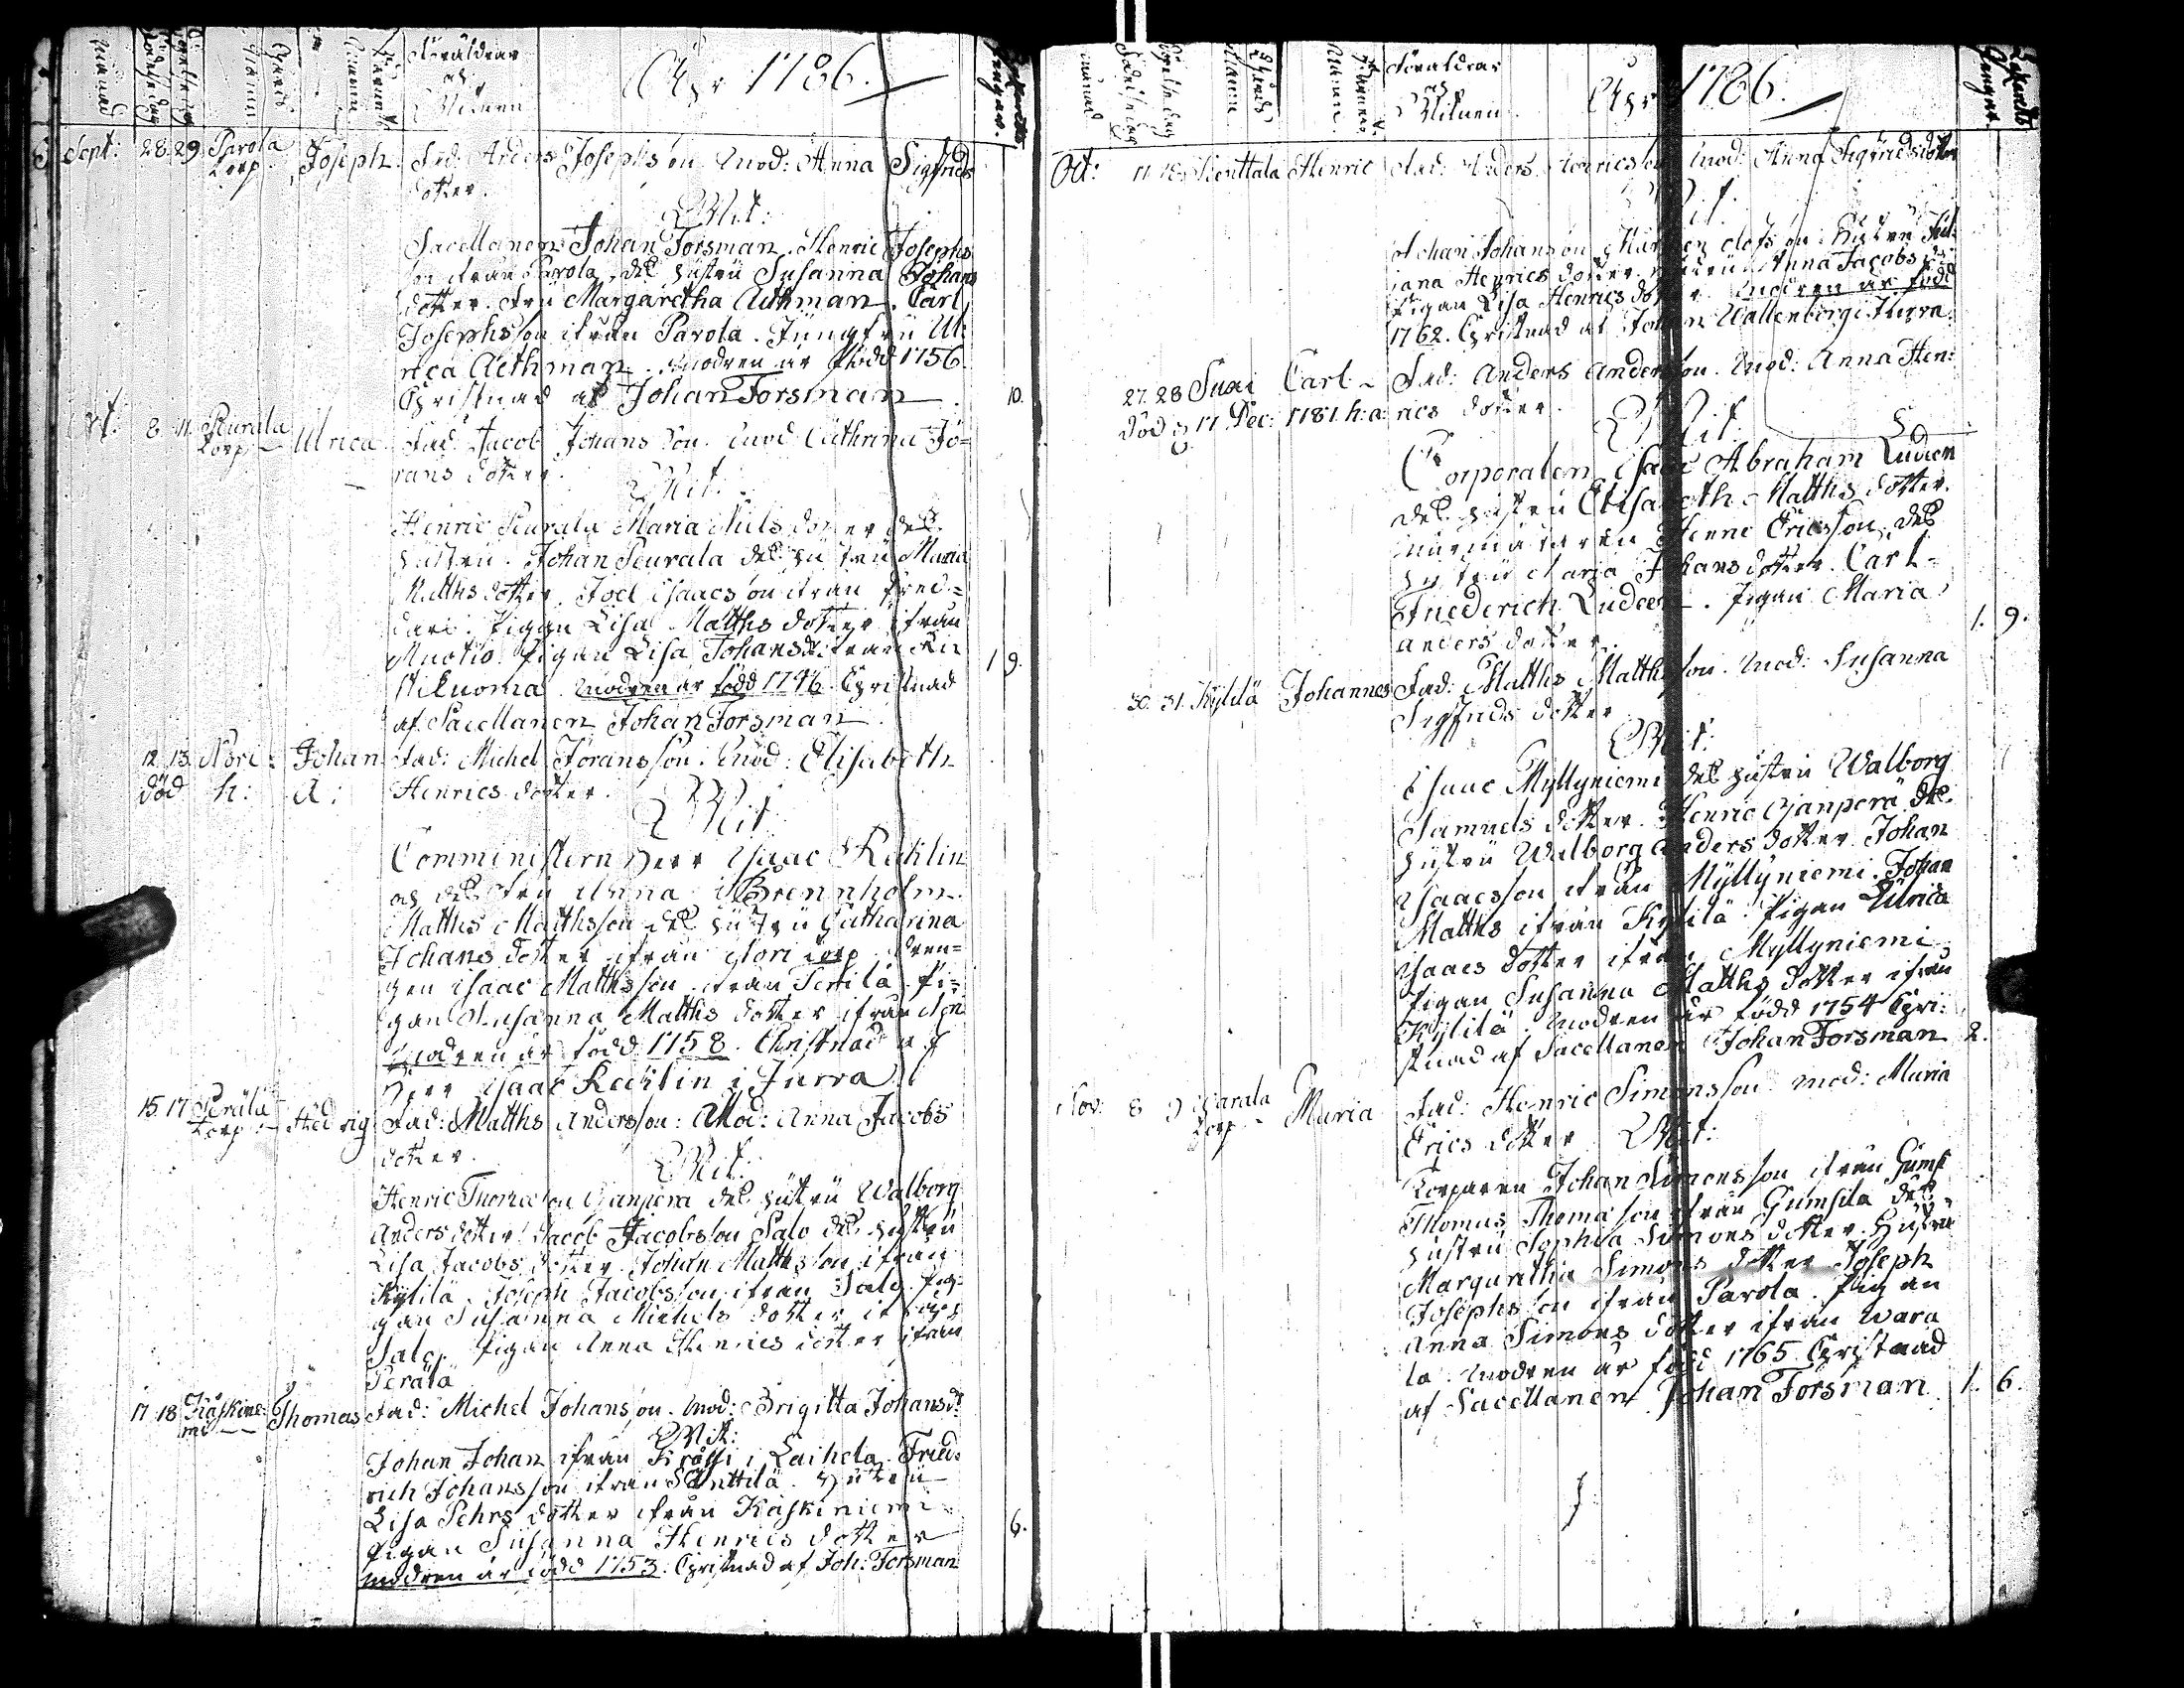 Föräldrar
och
Witnen
Åhr 1786.
Sept: 28. 29. Parola Joseph. Fad: Anders Josephson. Mod: Anna Sigfrids
Torp
dotter.
Wit:
Sacellanen Johan Forsman. Henric Josephs
son ifrån Parola, des hustru Susanna Johans
dotter. Fru Margaretha Aethman. Carl
Josephsson ifrån Parola. Jungfru Ul:
rica Aethman. Modren är född 1756.
Christnad af Johan Forsman. 10.
Oct: 8 11. Peurala Ulrica. Fad: Jacob Johansson. Mod: Cathrina Jö=
Torp
rans dotter.
Wit:
Henric Peurala Maria Nils dotter des
hustru. Johan Peurala des hustru Maria
Matths dotter. Joel Isaacsson ifrån
Pigan Lisa Matths dotter ifrån
Pigan Lisa Johansd: ifrån
Modren är född 1746. Christnad 1 9.
af Sacellanen Johan Forsman.
12. 13. Nori - Johan Fad: Michel Jöransson. Mod: Elisabeth
död h: a: Henrics dotter.
Wit:
Comministern Herr Isaac Reihlin
och des Fru Anna Brennholm.
Matths Matthsson des hustru Catharina
Johans dotter ifrån Nori torp. Dren=
gen Isaac Matthsson ifrån Pi=
gan Susanna Matths dotter ifrån Nori
Modren är född 1758. Christnad af
Herr Isaac Reihlin i Jurva.
15. 17. Perälä Hedvig Fad: Matths Andersson: Mod: Anna Jacobs
Torp
dotter.
Wit:
Henric Thomasson Ojanperä des hustru Walborg
Anders dotter. Jacob Jacobsson Salo des hustru
Lisa Jacobs dotter. Johan Matthsson ifrån
Kylilä. Joseph Jacobsson ifrån Salo. Pi=
gan Susanna Michels dotter ifrån
Salo. Pigan Anna Henrics dotter ifrån
Perälä
17. 18. Käskinie: Thomas Fad: Michel Johansson. Mod: Brigitta Johansd:
mi
Wit:
Johan Johan ifrån i Laihela. Fried:
rich Johansson ifrån Hustru
Lisa Pehrs dotter ifrån Käskiniemi
Pigan Susanna Henrics dotter 6.
Modren är född 1753. Christnad af Joh: Forsman.
Föräldrar
och
Witnen
Åhr 1786.
Oct: 17. 18. Henric Fad: Anders Henricsson Mod: Anna Sigfrids dotter
Wit:
Johan Johansson Olofsson Hustru Jul:
iana Henrics dotter. Anna Jacobs
Pigan Lisa Henrics dotter. Modren är född
1762. Christnad af Johan Wallenborg i Jurva.
27. 28 Carl - Fad: Anders Andersson. Mod: Anna Hen:
död 17 Dec: 1781. h: a: rics dotter.
Wit:
Corporalen Isaac Abraham
des hustru Elisabeth Matths dotter.
Henric Ericsson des
hustru Maria Johans dotter. Carl
Friederich. Pigan Maria
Anders dotter. 1. 9.
30. 31. Kylilä Johannes Fad: Matths Matthsson. Mod: Susanna
Sigfrids dotter
Wit:
Isaac Myllyniemi des hustru Walborg
Samuels dotter. Henric Ojanperä des
hustru Walborg Anders dotter. Johan
Isaacsson ifrån Myllyniemi. Johan
Matths ifrån Kylilä. Pigan Ulrica
Isaacs dotter ifrån Myllyniemi
Pigan Susanna Matths dotter ifrån
Kylilä. Modren är född 1754 Chri:
stnad af Sacellanen Johan Forsman 2.
Nov: 8 9 Warala Maria Fad: Henric Simonsson. Mod: Maria
Torp
Erics dotter
Wit:
Torparen Johan Simonsson ifrån
Thomas Thomasson ifrån Gumsila des
hustru Sophia Simons dotter. Hustru
Margaretha Simons dotter. Joseph
Josephsson ifrån Parola. Pigan
Anna Simons dotter ifrån Wara
la. Modren är född 1765. Christnad
af Sacellanen Johan Forsman 1. 6.